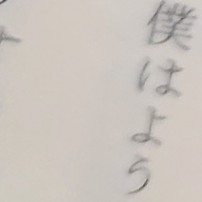 僕はよう